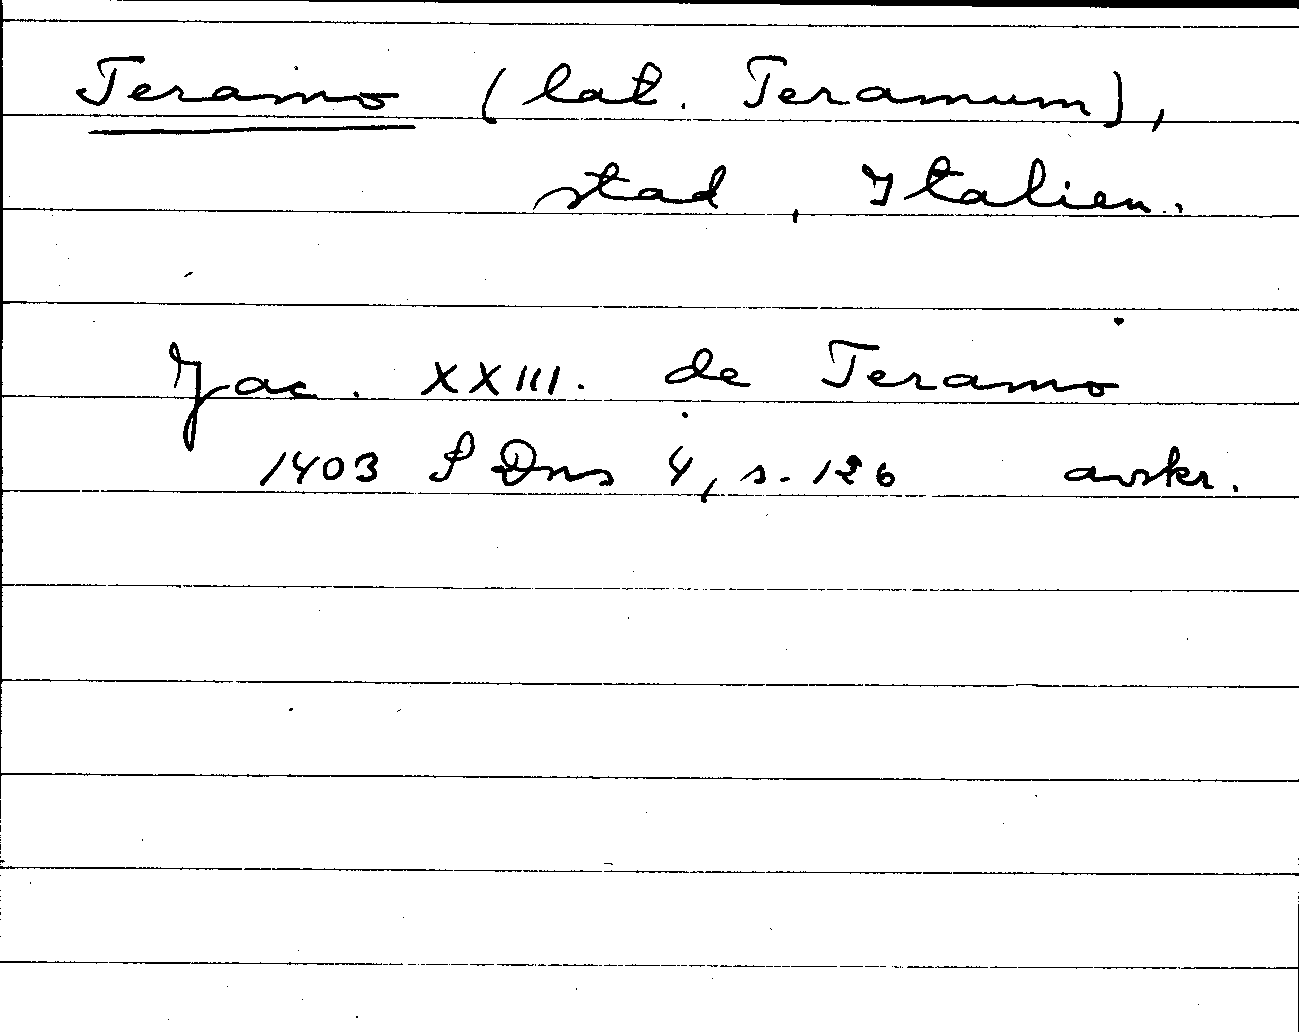 Teramo (lat. Teramum),
stad, Italien.
Jac. XXIII. de Teramo
1403 S Dns 4, s. 126 avskr.